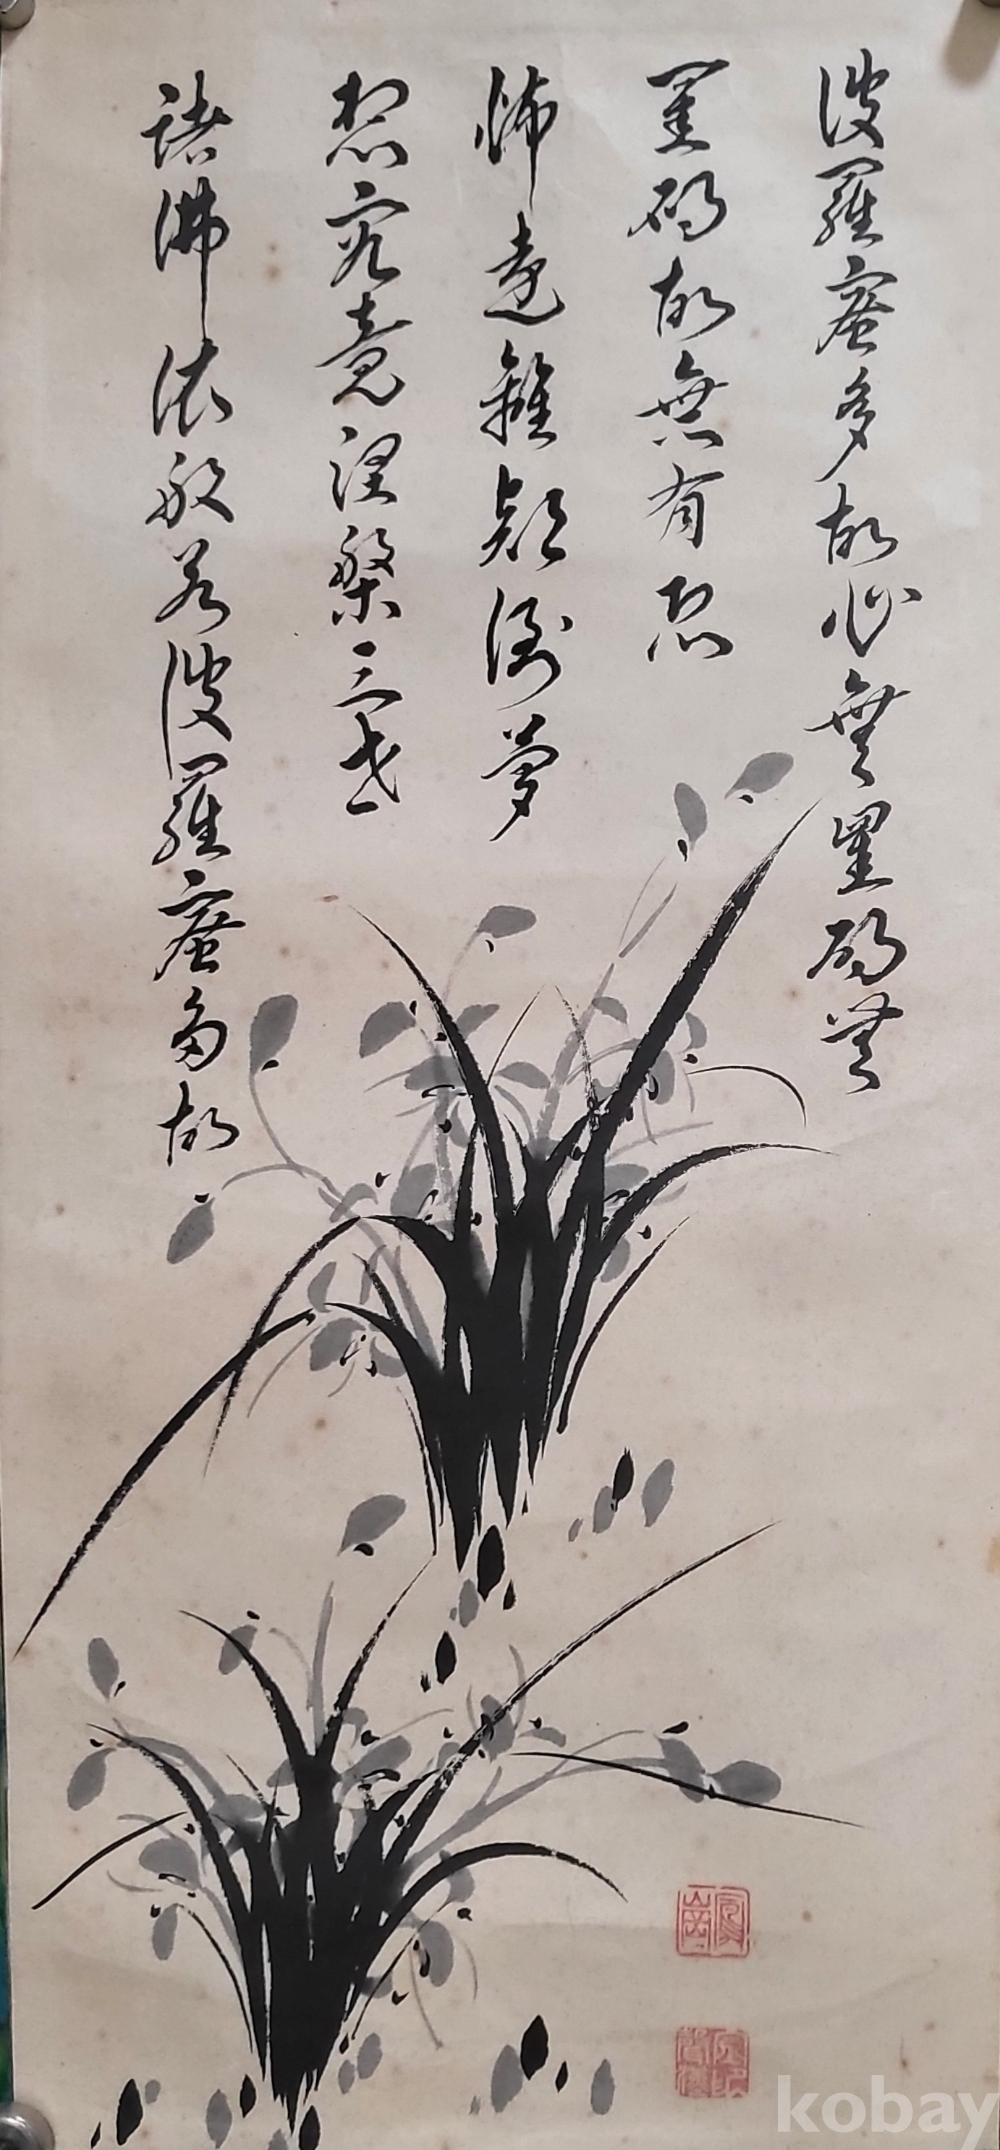 波羅蜜多故心無罣碍無
罣碍故無有恐
怖遠離顚倒夢
想究竟涅槃三世
諸佛依般若波羅蜜多故
kobay